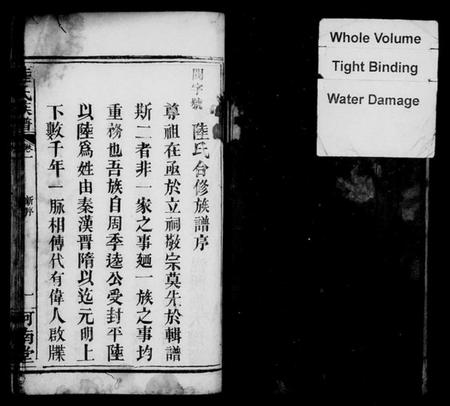 Whole Volume
Tight Binding
Water Damage
閣字號
陸氏合修族譜序
尊祖在亟於立祠敬宗莫先於輯譜
斯二者非一家之事廼一族之事均
重務也吾族自周季逵公受封平陸
以陸爲姓由秦漢晋隋以迄元明上
下數千年一脈相傳代有偉人啟牒
陸氏族譜
卷一
新序
一
河南堂